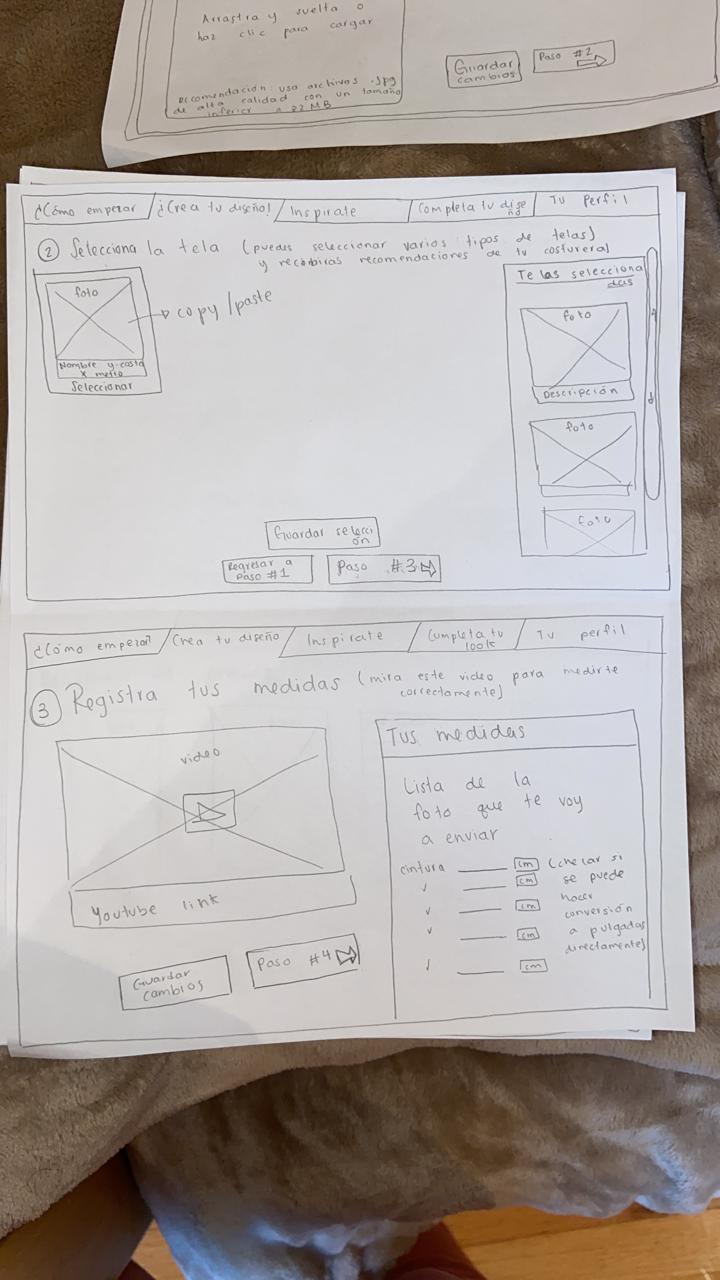 Arrastra y suelta o
haz clic para cargar
Recomendación: usa archivos .jpg
de alta calidad con un tamaño
inferior a 22 MB
Guardar
cambios
Paso #2
¿Cómo empezar
¡Crea tu diseño!
Inspirate
Completa tu dise
ño
Tu Perfil
2 Selecciona la tela (puedes seleccionar varios tipos de telas)
y recibiras recomendaciones de tu costurera)
foto
copy/paste
Nombre y costo
x metro
Seleccionar
Telas selecciona
das
foto
Descripción
foto
foto
Guardar selecci
ón
Regresar a
Paso #1
Paso #3
¿Cómo empezar?
Crea tu diseño
Inspirate
Completa tu
look
Tu perfil
3 Registra tus medidas (mira este video para medirte
correctamente)
video
Youtube link
Guardar
cambios
Paso #4
Tus medidas
Lista de la
foto que te voy
a enviar
cintura cm (checar si
cm se puede
cm hacer
conversión
cm a pulgadas
directamente)
cm